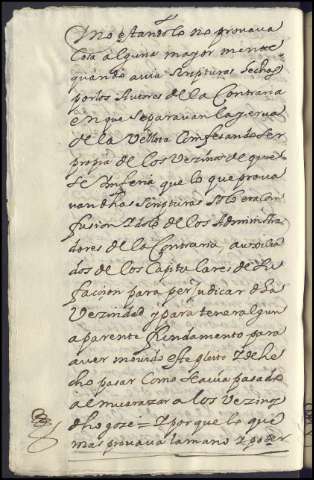 no estandolo no provava
cosa alguna mayor mente
quando avia scripturas fechas
por los Autores de la Contraria
en que separavan la yerva
de la Vellota Confesando ser
propia de los Vezinos de que
se Inferia que lo que prova
van dhas scripturas solo era con
fusion I dolo de los Administra
dores de la Contraria auxilia
dos de los Capitulares de su
façion para perjudicar dha
Vezindad y para tener algun
aparente fundamento para
aver movido este pleito I de he
cho pasar Como se avia pasado
a embarazar a los Vezinos
dho goze = I porque lo que
mas provava la mano I poder